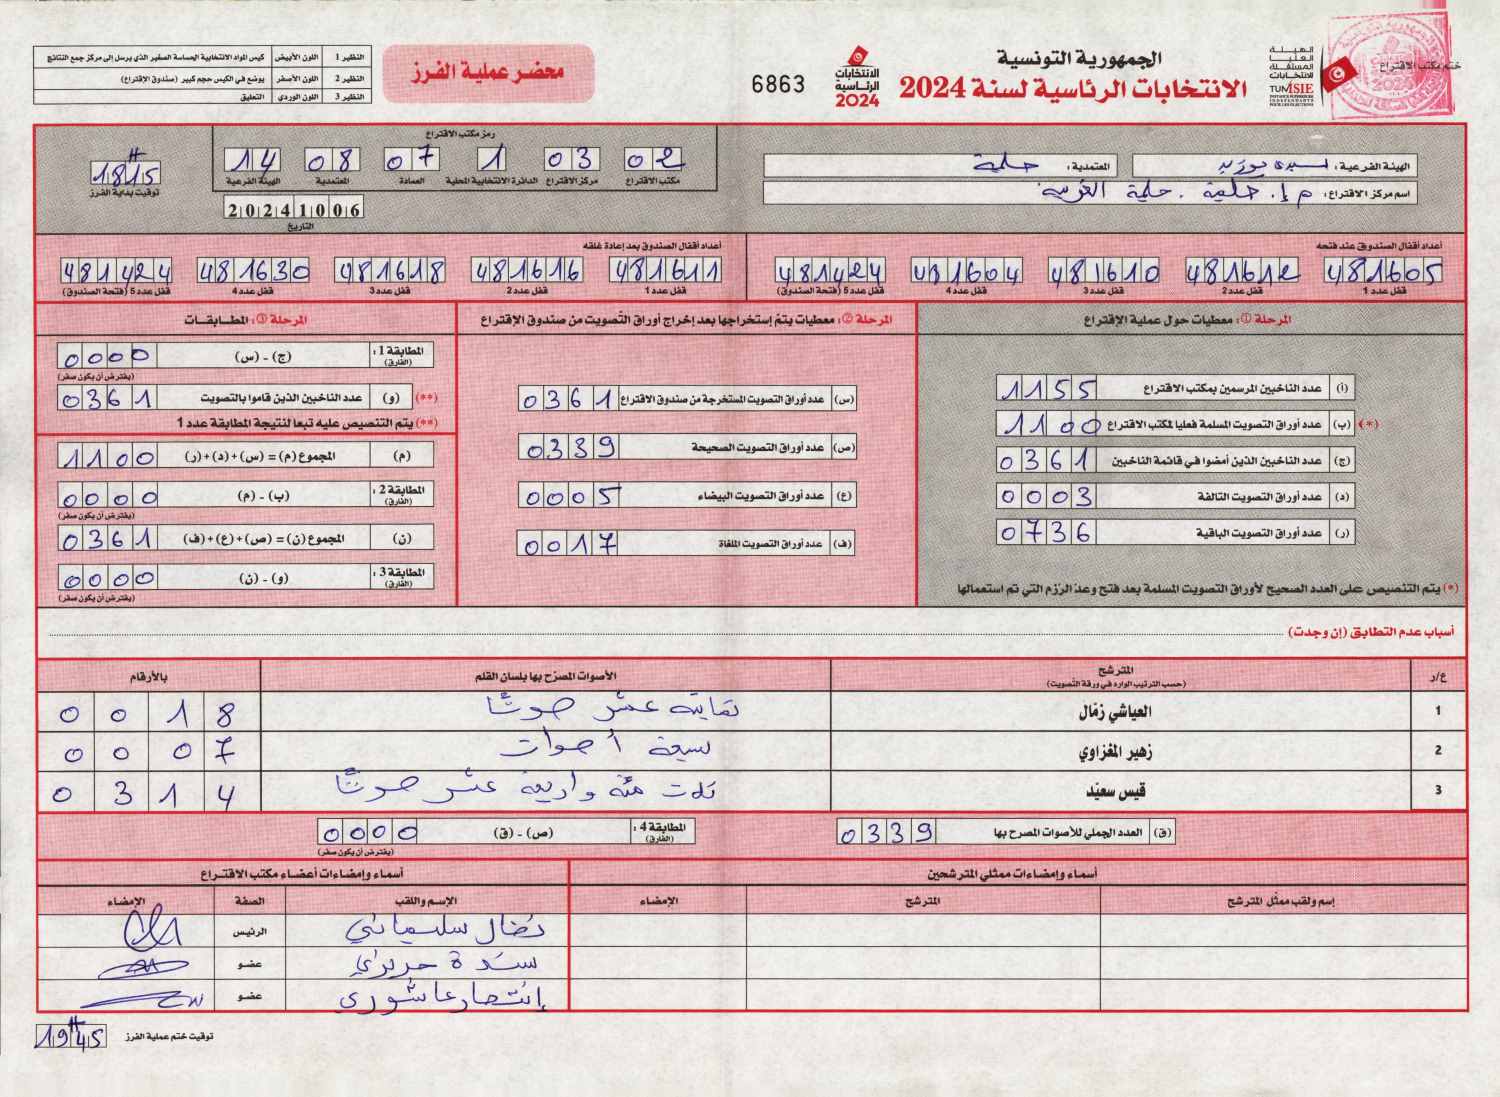 ختم مكتب الاقتراع
الهيئة العليا المستقلة للانتخابات
TUNISIE
الجمهورية التونسية
الانتخابات الرئاسية لسنة 2024
الانتخابات الرئاسية 2024
6863
محضر عملية الفرز
النظير 1 اللون الأبيض كيس المواد الانتخابية الحساسة الصغير الذي يرسل إلى مركز جمع النتائج
النظير 2 اللون الأصفر يوضع في الكيس حجم كبير (صندوق الإقتراع)
النظير 3 اللون الوردي التعليق
الهيئة الفرعية : سيدي بوزيد المعتمدية : جلمة
اسم مركز الاقتراع : م إ. جلمة . جلمة الغربية
رمز مكتب الاقتراع
02 03 1 07 08 14
مكتب الاقتراع مركز الاقتراع الدائرة الانتخابية المحلية العمادة المعتمدية الهيئة الفرعية
20241006
التاريخ
18H15
توقيت بداية الفرز
أعداد أقفال الصندوق عند فتحه
481605 481612 481610 481604 481424
قفل عدد 1 قفل عدد 2 قفل عدد 3 قفل عدد 4 قفل عدد 5 (فتحة الصندوق)
أعداد أقفال الصندوق بعد إعادة غلقه
481611 481616 481618 481630 481424
قفل عدد 1 قفل عدد 2 قفل عدد 3 قفل عدد 4 قفل عدد 5 (فتحة الصندوق)
المرحلة ①: معطيات حول عملية الإقتراع
(أ) عدد الناخبين المرسمين بمكتب الاقتراع 1155
(*) (ب) عدد أوراق التصويت المسلمة فعليا لمكتب الاقتراع 1100
(ج) عدد الناخبين الذين أمضوا في قائمة الناخبين 0361
(د) عدد أوراق التصويت التالفة 0003
(ر) عدد أوراق التصويت الباقية 0736
(*) يتم التنصيص على العدد الصحيح لأوراق التصويت المسلمة بعد فتح وعد الرزم التي تم استعمالها
المرحلة ②: معطيات يتم إستخراجها بعد إخراج أوراق التصويت من صندوق الإقتراع
(س) عدد أوراق التصويت المستخرجة من صندوق الاقتراع 0361
(ص) عدد أوراق التصويت الصحيحة 0339
(ع) عدد أوراق التصويت البيضاء 0005
(ف) عدد أوراق التصويت الملغاة 0017
المرحلة ③: المطابقات
المطابقة 1 : (الفارق) (ج) - (س) 0000
(يفترض أن يكون صفر)
(**) (و) عدد الناخبين الذين قاموا بالتصويت 0361
(**) يتم التنصيص عليه تبعا لنتيجة المطابقة عدد 1
(م) المجموع (م) = (س)+(د)+(ر) 1100
المطابقة 2 : (الفارق) (ب) - (م) 0000
(يفترض أن يكون صفر)
(ن) المجموع (ن) = (ص)+(ع)+(ف) 0361
المطابقة 3 : (الفارق) (و) - (ن) 0000
(يفترض أن يكون صفر)
أسباب عدم التطابق (إن وجدت)
ع/ر المترشح (حسب الترتيب الوارد في ورقة التصويت) الأصوات المصرّح بها بلسان القلم بالأرقام
1 العياشي زمّال ثمانية عشر صوتًا 0018
2 زهير المغزاوي سبعة أصوات 0007
3 قيس سعيّد ثلاث مئة وأربعة عشر صوتًا 0314
(ق) العدد الجملي للأصوات المصرح بها 0339
المطابقة 4 : (الفارق) (ص) - (ق) 0000
(يفترض أن يكون صفر)
أسماء وإمضاءات ممثلي المترشحين
إسم ولقب ممثل المترشح المترشح الإمضاء
أسماء وإمضاءات أعضاء مكتب الاقتراع
الإسم واللقب الصفة الإمضاء
نضال سليماني الرئيس
سندة حريزي عضو
إنتصار عاشوري عضو
توقيت ختم عملية الفرز 19H45